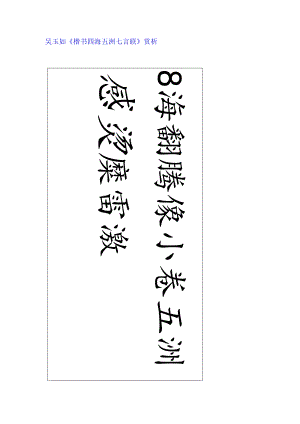 吴玉如《楷书四海五洲七言联》赏析
8海翻腾像小卷五洲
感烫糜雷激